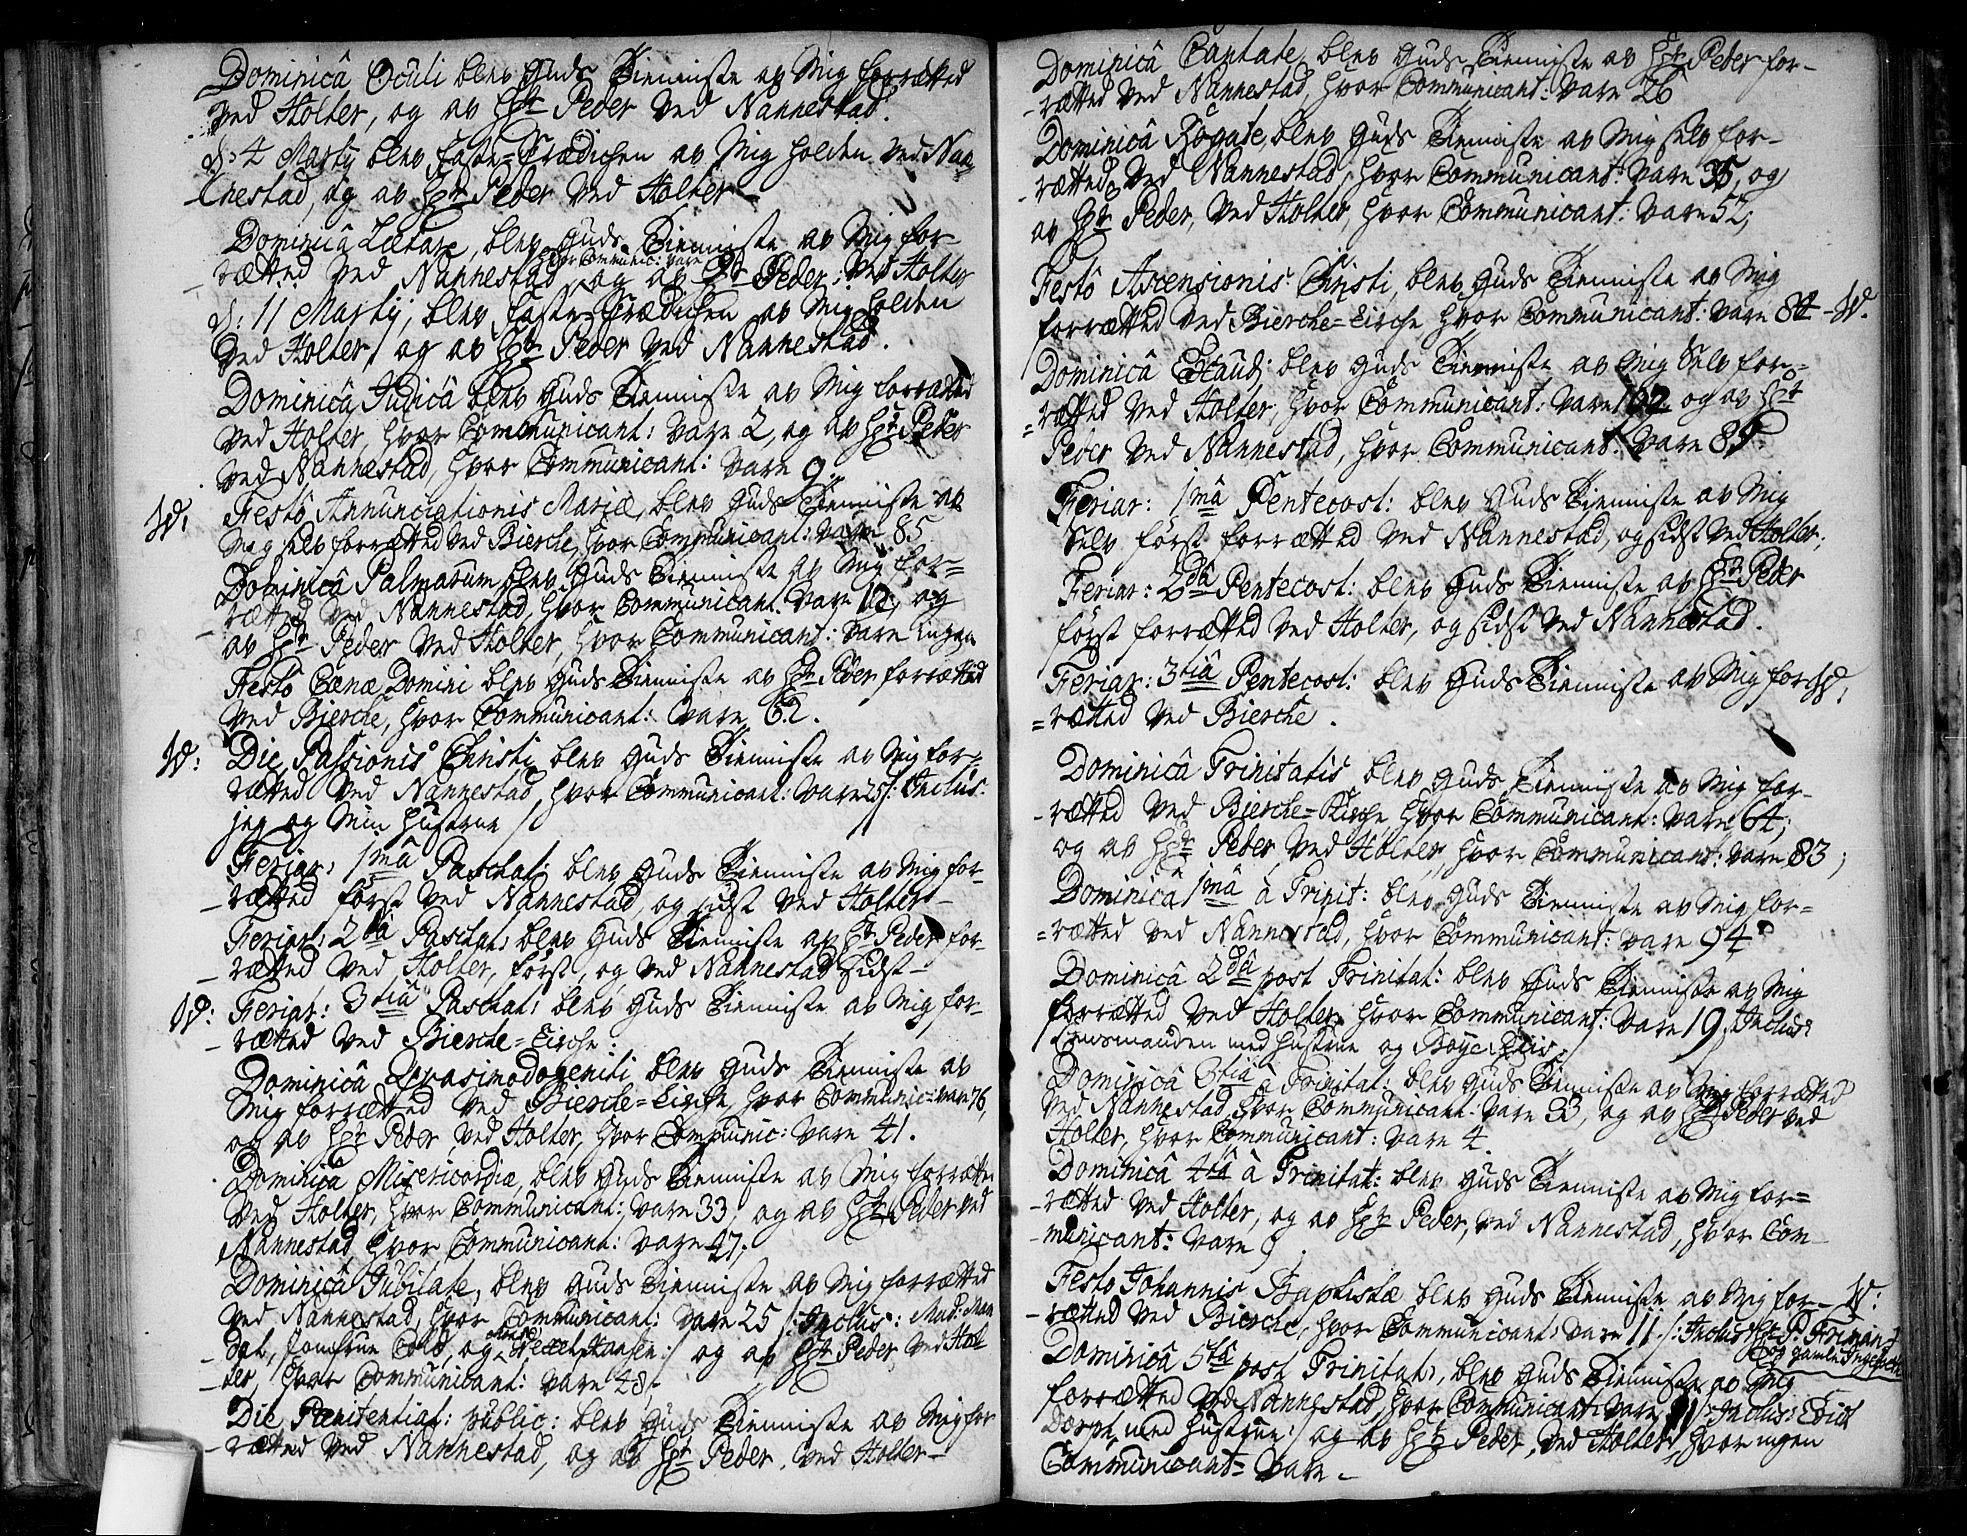 Dominicâ Oculi blev Guds Tienniste av Mig forrætted
ved Holter, og av Hr Peder ved Nannestad.
d: 4 Martij blev faste-Prædichen av Mig holden ved Nan-
-nestad, og av Hr Peder ved Holter-
Dominicâ Lætare, blev Guds Tienniste av Mig for-
hvor Communic: vare
-rætted ved Nannestad og av Hr Peder, ved Holter
d: 11 Martij, blev faste-Prædichen av Mig holden
ved Holter, og av Hr Peder ved Nannestad.
Dominicâ Judicâ blev Guds Tienniste av Mig forrætted
ved Holter, hvor Communicant: vare 2, og av Hr Peder
ved Nannestad, hvor Communicant: vare 9.
Festô Annunciationis Mariæ, blev Guds Tienniste av
Mig selv forrætted ved Bierche, hvor Communicant: vare 85
Dominicâ Palmarum blev Guds Tienniste av Mig for=
-rætted ved Nannestad, hvor Communicant. vare 12, og
av Hr Peder ved Holter, hvor Communicant: vare ingen
Festô Cænæ Domini blev Guds Tienniste av Hr Peder forrætted
ved Bierche, hvor Communicant: vare 62.
Die Passionis Christi blev Guds Tienniste av Mig for=
rætted ved Nannestad, hvor Communicant: vare 25 /: Inclus:
jeg og Min Hustrue /
Feriar: 1mâ Paschat: blev Guds Tienniste av Mig for-
-rætted først ved Nannestad, og sidst ved Holter-
Feriar: 2dâ Paschat: blev Guds Tienniste av Hr Peder for-
-rætted ved Holter, først, og ved Nannestad sidst-
Feriar: 3tiâ Paschat: blev Guds Tienniste av Mig for-
-rætted ved Bierche=Kirche.
Dominicâ Qvasimodogeniti blev Guds Tienniste av
Mig forrætted ved Bierche=Kirche, hvor Communic: vare 76,
og av Hr Peder ved Holter, hvor Communic: vare 41.
Dominicâ Misericordiæ, blev Guds Tienniste av Mig forrætted
ved Holter, hvor Communicant: vare 33, og av Hr Peder ved
Nannestad hvor Communicant: vare 47.
Dominicâ Jubilate, blev Guds Tienniste av Mig forrætted
ved Nannestad, hvor Communicant: vare 25 /: Inclus: Mad: Man
-dal, Jomfrue Cold, og Hansen:/ og av Hr Peder ved Hol
-ter, hvor Communicant: vare 48-
Die Pænitential: public: blev Guds Tienniste av Mig for
-rætted ved Nannestad, og av Hr Peder, ved Holter-
Dominicâ Cantate, blev Guds Tienniste av Hr Peder for-
-rætted ved Nannestad, hvor Communicant: vare 26
Dominicâ Rogate, blev Guds Tienniste av Mig selv for-
-rætted, ved Nannestad, hvor Communicant: vare 35, og
av Hr Peder, ved Holter, hvor Communicant: vare 52,
Festô Ascensionis Christi, blev Guds Tienniste av Mig
forrætted ved Bierche=Kirche hvor Communicant: vare 84
Dominicâ Exaud: blev Guds Tienniste av Mig Selv for-
=rætted ved Holter, hvor Communicant: vare 62 og av Hr
Peder ved Nannestad, hvor Communicant: vare 89.
Feriar: 1mâ Pentecost: blev Guds Tienniste av Mig
Selv først forrætted ved Nannestad, og sidst ved Holter,
Feriar: 2dâ Pentecost: blev Guds Tienniste av Hr Peder
først forrætted ved Holter, og sidst ved Nannestad.
Feriar: 3tiâ Pentecost: blev Guds Tienniste av Mig for
=rætted ved Bierche.
Dominicâ Trinitatis blev Guds Tienniste av Mig for-
-rætted ved Bierche=Kirche hvor Communicant: vare 64;
og av Hr Peder, ved Holter, hvor Communicant: vare 83;
Dominicâ 1mâ â Trinit: blev Guds Tienniste av Mig for=
=rætted ved Nannestad, hvor Communicant: vare 94
Dominicâ 2dâ post Trinitat: blev Guds Tienniste av Mig
forrætted ved Holter, hvor Communicant: vare 19. /: Inclus:
Lensmanden med Hustrue og
Dominicâ 3tiâ â Trinitat: blev Guds Tienniste av Mig forrætted
ved Nannestad, hvor Communicant: vare 33, og av Hr Peder ved
Holter, hvor Communicant: vare 4.
Dominicâ 4tâ â Trinitat: blev Guds Tienniste av Mig for=
-rætted ved Holter, og av Hr Peder, ved Nannestad, hvor Com-
municant: vare 9.
Festo Johannis Baptistæ blev Guds Tienniste av Mig for-
-rætted ved Bierche, hvor Communicant: vare 11. /: Inclus: Hr P:
og gamle
Dominicâ 5tâ post Trinitat:, blev Guds Tienniste av Mig
forrætted ved Nannestad, hvor Communicant: vare /: Inclus:
med Hustrue:/ og av Hr Peder, ved Holter, hvor ingen
Communicant= vare-